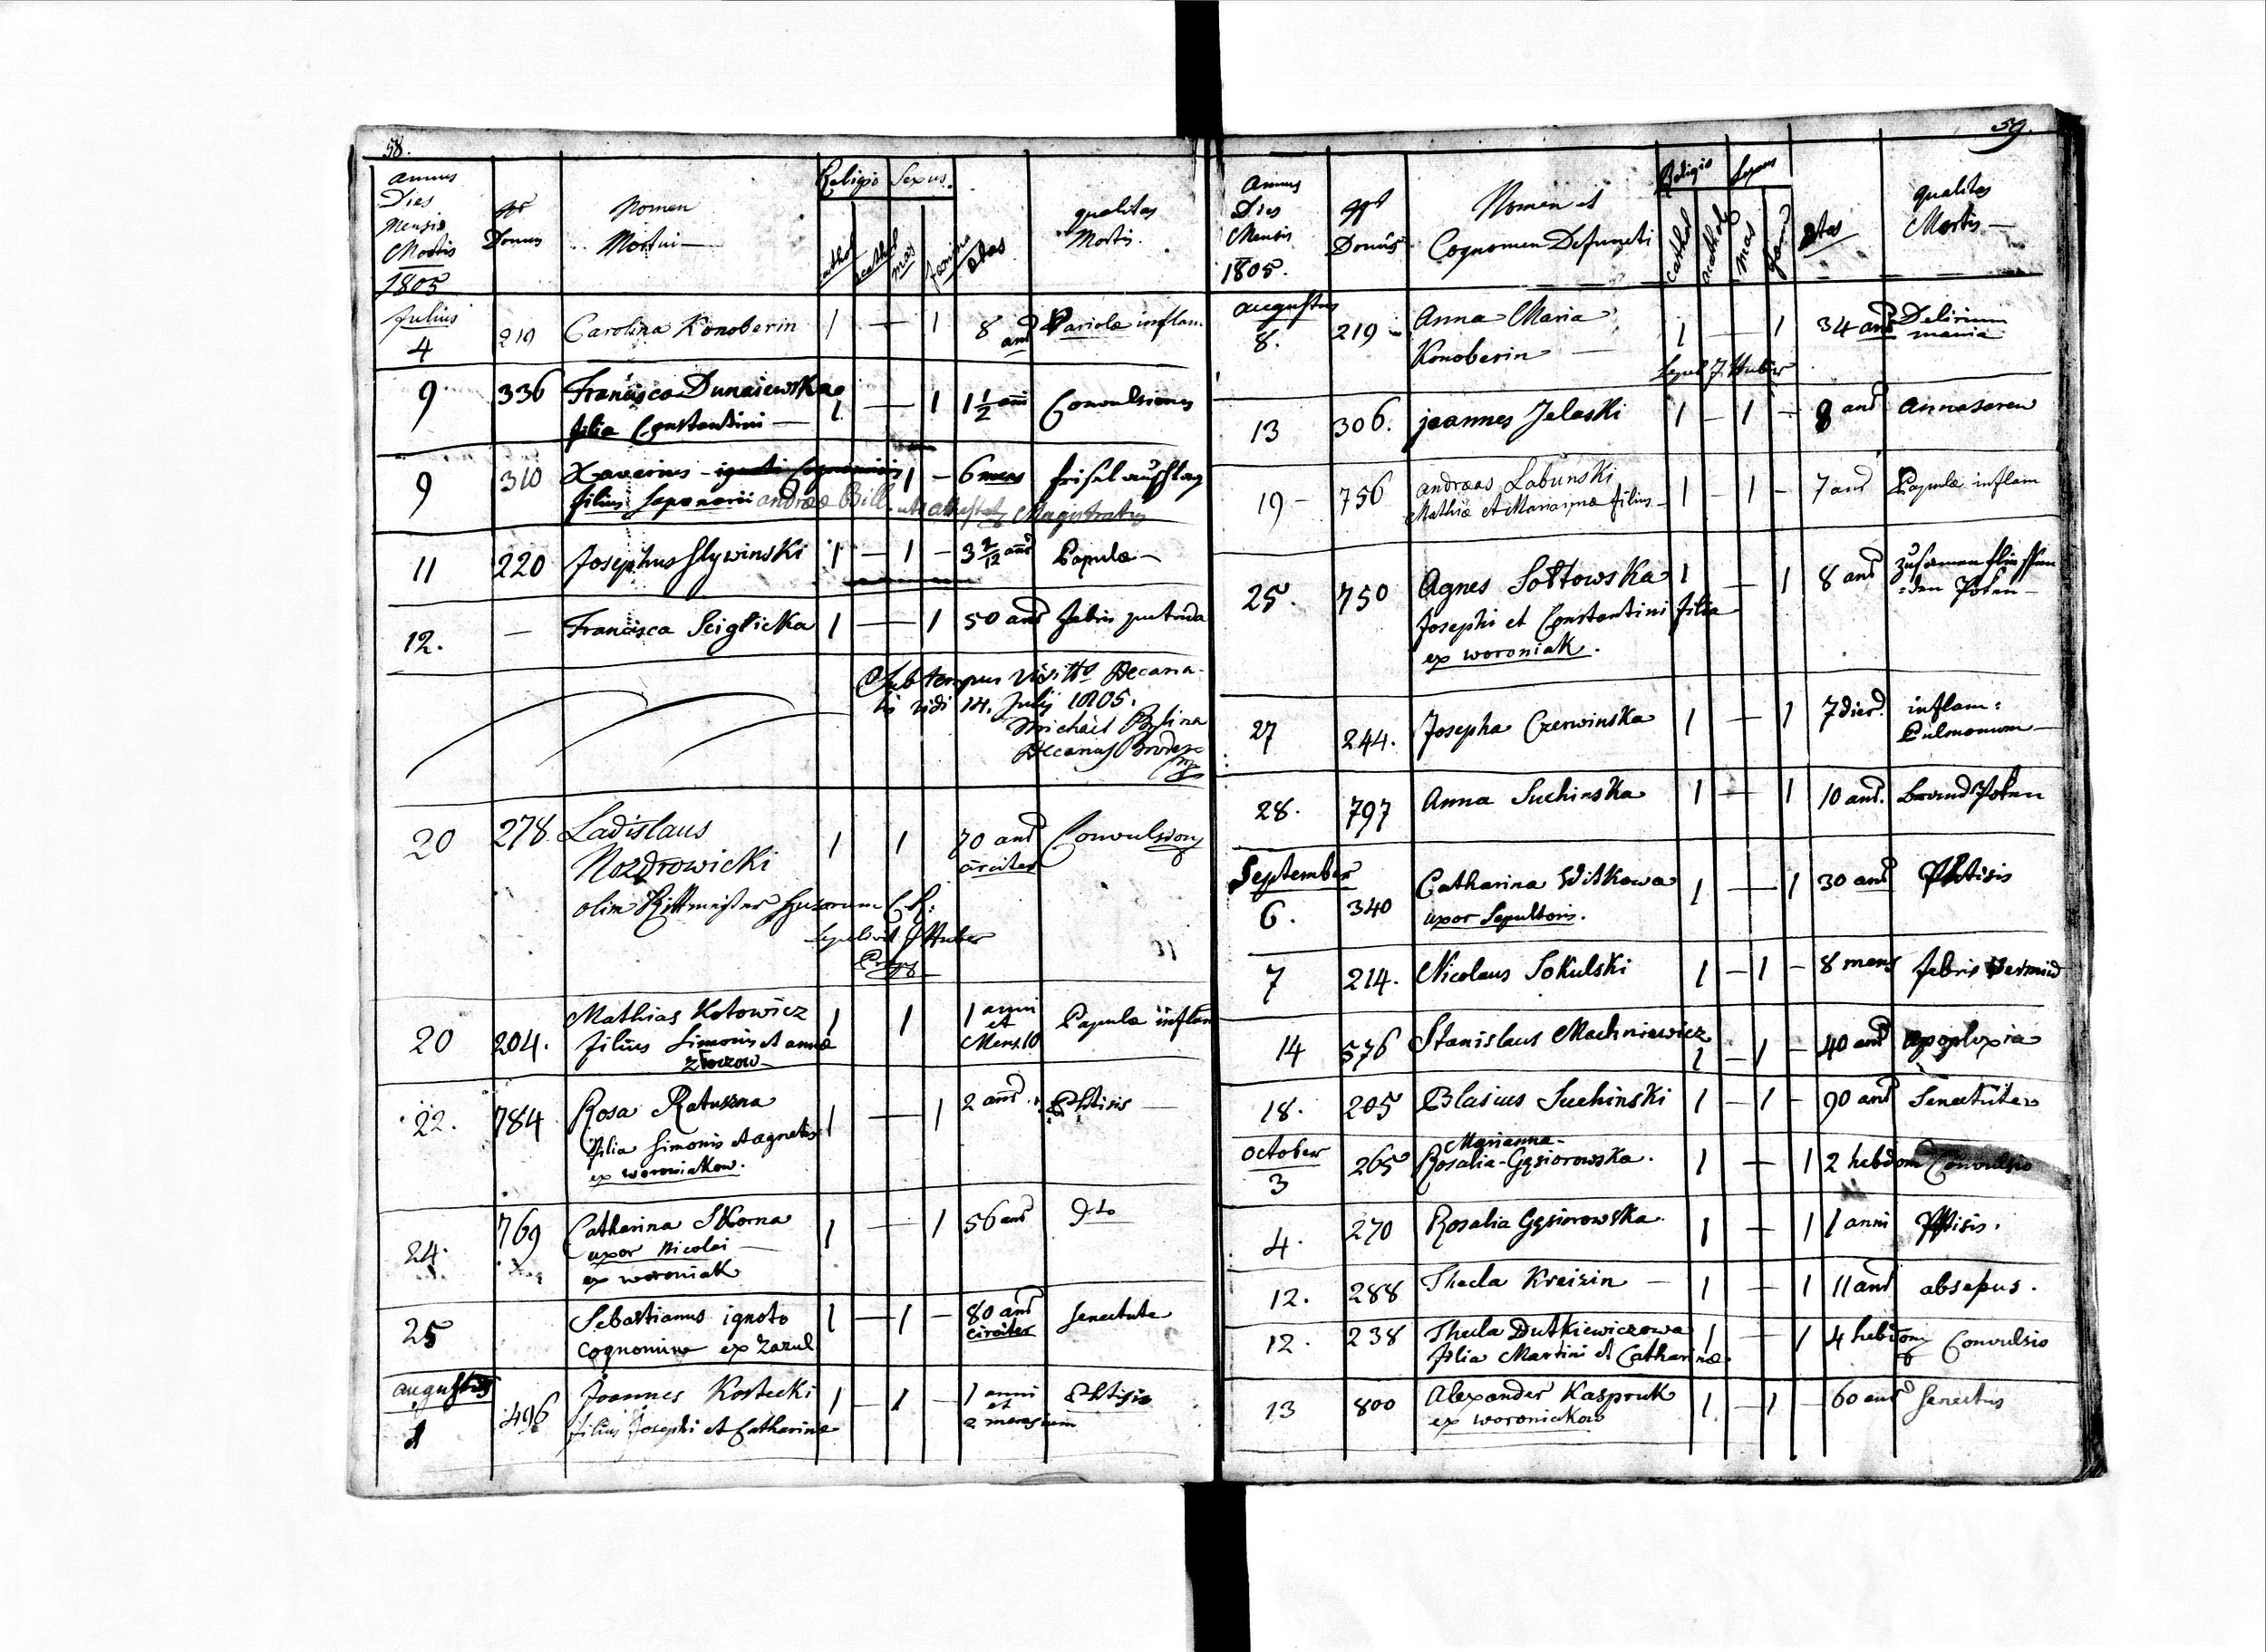 58.
annus
Dies
Mensis
Mortis
1805
Nr
Domus
Nomen
Mortui
Religio
cathol
acathol
Sexus.
mas
femina
etas
qualitas
Mortis.
Julius
4 219 Carolina Konoberin 1 — 1 8 and Variolæ inflam.
9 336 Francisca Dunaiewska 1 — 1 1 1/2 ani Convulsiones
filia Constantini —
9 310 Xaverius - 1 — 6 mens friselausschlag
filius Saponarii andreæ Bill. Magistratus
11 220 Josephus Slywinski 1 — 1 — 3 2/12 and Papulæ —
12. — Francisca Sciglicka 1 — 1 50 and febris putrida
Sub tempus Decana-
tis vidi 14. July 1805.
Michael Bylina
Decanus
20 278 Ladislaus 1 1 70 and Convulsiones
Nozdrowicki circiter
olim Rittmeister Husarum C. R.
Sepelivit J Huber
20 204. Mathias Kotowicz 1 1 1 anni et Mens. 10 Papulæ inflam
filius Simonis et annæ
Złoczow
22. 784 Rosa Ratuszna 1 — 1 2 and Phtisis —
filia Simonis et agnetis
ex woroniakow.
24. 769 Catharina Skorna 1 — 1 56 and Dto
uxor Nicolai —
ex woroniak
25 Sebastianus ignoto 1 — 1 — 80 and circiter Senectute
cognomine ex Zazul
augustus
1 496 Joannes Kostecki 1 — 1 — 1 anni et 2 mensium Phtisis
filius Josephi et Catharinæ
59.
Annus
Dies
Mensis
1805.
Nr
Domus
Nomen et
Cognomen Defuncti
Religio
cathol
acathol
Sexus
mas
etas
qualitas
Mortis —
augustus
8. 219 Anna Maria 1 — 1 34 and Delirium
Konoberin — mania
Sepel J. Huber
13 306. joannes Jelaski 1 — 1 — 8 and
19 - 756 andreas Labunski 1 — 1 — 7 and Papulæ inflam
Mathiæ et Mariannæ filius
25. 750 Agnes Sołtowska 1 — 1 8 and zusamenfliessen
Josephi et Constantini filia =den Poken —
ex woroniak.
27 244. Josepha Czerwinska 1 — 1 7 dier. inflam:
Pulmonum —
28. 797 Anna Suchinska 1 — 1 10 and. brandPoken
September
6. 340 Catharina Witkowa 1 — 1 30 and Phtisis
uxor Sepultoris.
7 214. Nicolaus Sokulski 1 — 1 — 8 mens febris
14 576 Stanislaus Machniewicz 1 — 1 — 40 and apoplexia
18. 205 Blasius Suchinski 1 — 1 — 90 and Senectute
October
Marianna-
3 265 Rosalia-Gąsiorowska. 1 — 1 2 hebdom Convulsio
4. 270 Rosalia Gąsiorowska. 1 — 1 1 anni Phtisis.
12. 288 Thecla Kreizin — 1 — 1 11 and absepus.
12. 238 Thecla Dutkiewiczowa 1 — 1 4 hebdom Convulsio
filia Martini et Catharinæ
13 800 Alexander Kaspruk 1. — 1 — 60 and Senectus
ex woroniakow